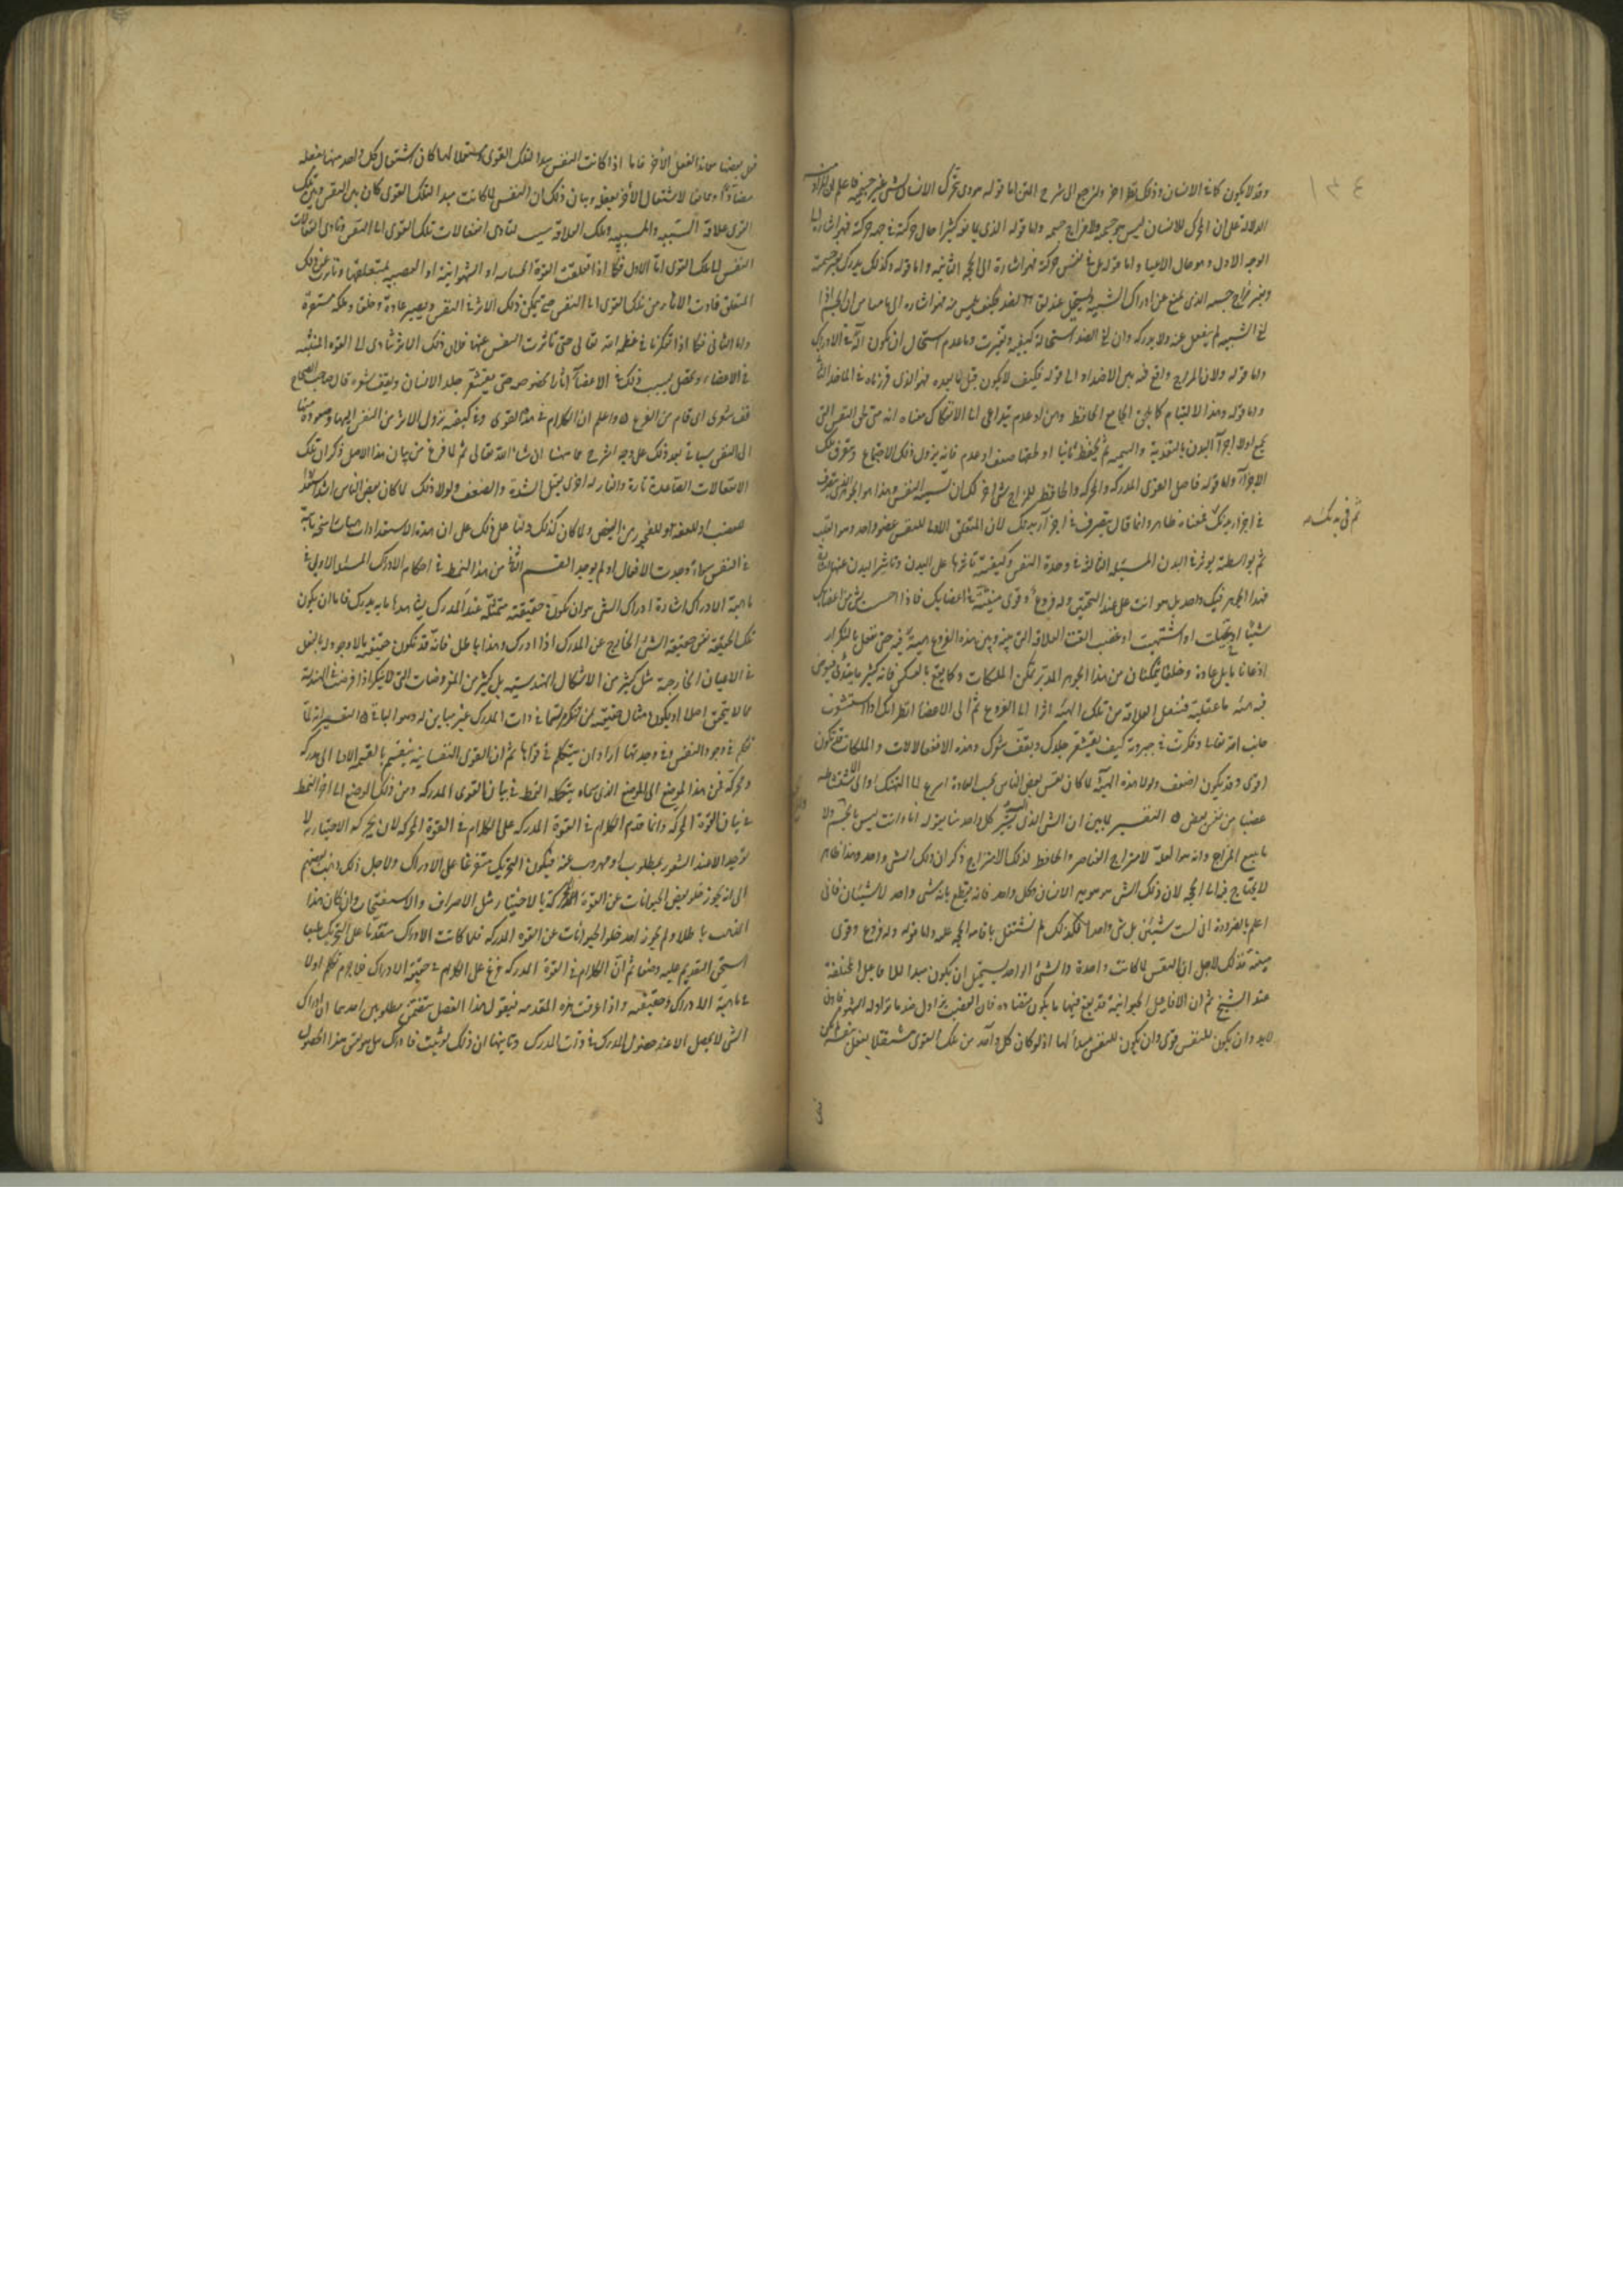 ١٣٤
وقد لا يكون كما في الانسان وذلك نظر اخر ولنرجع الى شرح المتن اما قوله هو ذى تحرك الانسان بشى غير جسميته فاعلم ان المراد منه
الدلالة على ان المحرك للانسان ليس هو جسمه ولا مزاج جسمه واما قوله الذى يمانعه كثيرا حال حركته في جهة حركته فهو اشارة الى
الوجه الاول وهو حال الاعيا واما قوله بل في نفس حركته فهو اشارة الى الحجة الثانية واما قوله وكذلك يدرك بغير جسميته
وبغير مزاج جسمه الذى يمنع عن ادراك الشبيه ويستحيل عند لقا الضد فكيف يلمس به فهو اشارة الى
لقى الشبيه لم ينفعل عنه ولا يدركه وان لقى الضد استحالة كيفيته وتغيرت وما عدم استحال ان يكون آلة في الادراك
واما قوله ولان المزاج واقع فيه بين الاضداد الى قوله فكيف لا يكون قبل ما بعده فهو الذى قررناه في الماخذ الثالث
واما قوله وهذا الالتيام كما يلحق الجامع الحافظ وهن او عدم يتداعى الى الانفكاك معناه انه متى لحق النفس التى
يجمع اولا اجزآ البدن بالتغذية والتنمية ثم يحفظ ثانيا او لحقها ضعف او عدم فانه يزول ذلك الاجتماع وتتفرق تلك
الاجزآ واما قوله فاصل القوى المدركة والمحركة والحافظة للمزاج شى اخر لك ان تسميه النفس وهذا هو الجوهر الذى يتصرف
في اجزاء بدنك فمعناه ظاهر وانما قال يتصرف في اجزآء بدنك لان المتعلق الاول للنفس عضو واحد وهو القلب
ثم في بدنك
ثم بواسطته يؤثر في البدن المسئلة الثالثة في وحدة النفس وكيفية تاثيرها على البدن وتاثير البدن عنها اشارة
فهذا الجوهر فيك واحد بل هو انت على عند التحقيق وله فروع وقوى منبثة في اعضايك فاذا احسست بشى من اعضايك
شيئا او تخيلت او اشتهيت او غضبت القت العلاقة التى بينه وبين هذه الفروع هيئة فيه حتى تفعل بالتكرار
اذعانا ما بل عادة وخلقا يتمكنان من هذا الجوهر المدبر تمكن الملكات وكما يقع بالعكس فانه كثيرا ما يبتدى فيعرض
فيه هيئة ما عقلية فتنقل العلاقة من تلك الهيئة اثرا الى الفروع ثم الى الاعضا انظر انك اذا استشعرت
جانب الله تعالى وفكرت في جبروته كيف يقشعر جلدك ويقف شعرك وهذه الانفعالات والملكات قد تكون
اقوى وقد يكون اضعف ولولا هذه الهيآت لما كان نفس بعض الناس بحسب العادة اسرع الى التهتك او الى الاستشاطة
غضبا من نفس بعض ه التفسير لما بين ان الشى الذى يشير كل واحد منا بقوله انا وانت ليس بالجسم ولا
بتابع المزاج وانه هو العلة لامتزاج العناصر والحافظ لذلك الامتزاج ذكر ان ذلك الشى واحد وهذا ظاهر
لا يحتاج فيه الى الحجة لان ذلك الشى هو هوية الانسان وكل واحد فانه يقطع بانه شى واحد لا شيئان فانى
اعلم بالضرورة انى لست شيئين بل شى واحد فلذلك لم نشتغل باقامة الحجة عليه واما قوله وله فروع وقوى
منبثة فذلك لاجل ان النفس لما كانت واحدة والشى الواحد يستحيل ان يكون مبدا للافاعيل المختلفة
عند الشيخ ثم ان الافاعيل الحيوانية قد يقع فيها ما يكون متضادة فان الغضب يزاول ضد ما تزاوله الشهوة فاذن
لابد وان يكون للنفس قوى وان يكون للنفس مبدأ لها اذ لو كان كل واحد من تلك القوى مستقلا بفعل نفسه لم يكن
فعل بعضها معاندا لفعل الاخر فاما اذا كانت النفس مبدا لتلك القوى ومستعملا لها كان اشتغال كل واحد منها بفعله
مضادا ومانعا لاشتغال الاخر بفعله وبيان ذلك ان النفس لما كانت مبدا لتلك القوى كان بين النفس وبين تلك
القوى علاقة السببية والمسببية وتلك العلاقة سبب لتادى انفعالات تلك القوى الى النفس وتادى انفعالات
النفس الى تلك القوى اما الاول فكما اذا تعلقت القوة الحساسة او الشهوانية او الغضبية بمتعلقها وتاثرت عن ذلك
المتعلق فادت الاثار من تلك القوى الى النفس حتى يتمكن ذلك الاثر في النفس ويصير عادة وخلقا وملكة مستقرة
واما الثانى فكما اذا تفكرنا في عظمة الله تعالى حتى تاثرت النفس عنها فلان ذلك الاثر يتادى الى القوة المنبثة
في الاعضاء ويحصل بسبب ذلك في الاعضآ اثار مخصوصة حتى يقشعر جلد الانسان ويقف شعره قال صاحب الصحاح
قف شعرى اى قام من الفزع ه واعلم ان الكلام في هذه القوى وفي كيفية نزول الاثر من النفس اليها وصعوده منها
الى النفس سياتى بعد ذلك على وجه الشرح مما هنا ان شاء الله تعالى ثم لما فرغ من بيان هذا الاصل ذكر ان تلك
الانفعالات الصاعدة تارة والنازلة اخرى يقبل الشدة والضعف ولولا ذلك لما كان بعض الناس اشد استعدادا
للغضب او للعفة او للفجور من البعض ولما كان كذلك دلنا على ذلك على ان هذه الاستعدادات هيئات راسخة ثابتة
في النفس سواء وجدت الافعال او لم يوجد القسم الثانى من هذا النمط في احكام الادراك المسئلة الاولى في
ماهية الادراك اشارة ادراك الشى هو ان تكون حقيقته متمثلة عند المدرك يشاهدها ما به يدرك فاما ان يكون
تلك الحقيقة نفس حقيقة الشئ الخارج عن المدرك اذا ادرك وهذا باطل فانه قد تكون حقيقة مالا وجود له بالفعل
في الاعيان الخارجة مثل كثير من الاشكال الهندسية بل كثير من المفروضات التى لا يمكن اذا فرضت في الهندسة
مما لا يتحقق اصلا او يكون مثال حقيقته مرتسما في ذات المدرك غير مباين له وهو الباقى ه التفسير انه لما
تكلم في وجود النفس وفي وحدتها اراد ان يتكلم في قواها ثم ان القوى النفسانية ينقسم بالقسمة الاولى الى مدركة
ومحركة فمن هذا الموضع الى الموضع الذى سماه بتكملة النمط في بيان القوى المدركة ومن ذلك الموضع الى اخر النمط
في بيان القوة المحركة وانما قدم الكلام في القوة المدركة على الكلام في القوة المحركة لان الحركة الاختيارية لا
توجد الا عند الشعور بمطلوب او مهروب عنه فيكون التحريك متفرعا على الادراك ولاجل ذلك ذهب بعضهم
الى انه يجوز خلو بعض الحيوانات عن القوة المحركة بالاختيار مثل الاصداف والاسفنجات وان كان هذا
المذهب باطلا ولم يجوز احد خلو الحيوانات عن القوة المدركة فلما كانت الادراك متقدما على التحريك طبعا
استحق التقديم عليه وضعا ثم ان الكلام في القوة المدركة فرع على الكلام في حقيقة الادراك فلا جرم تكلم اولا
في ماهية الادراك وحقيقته واذا عرفت هذه المقدمة فنقول هذا الفصل يتضمن مطلوبين احدهما ان ادراك
الشى لا يحصل الا عند حصول المدرك في ذات المدرك وثانيهما ان ذلك لو ثبت فادراك هل هو نفس هذا الحصول